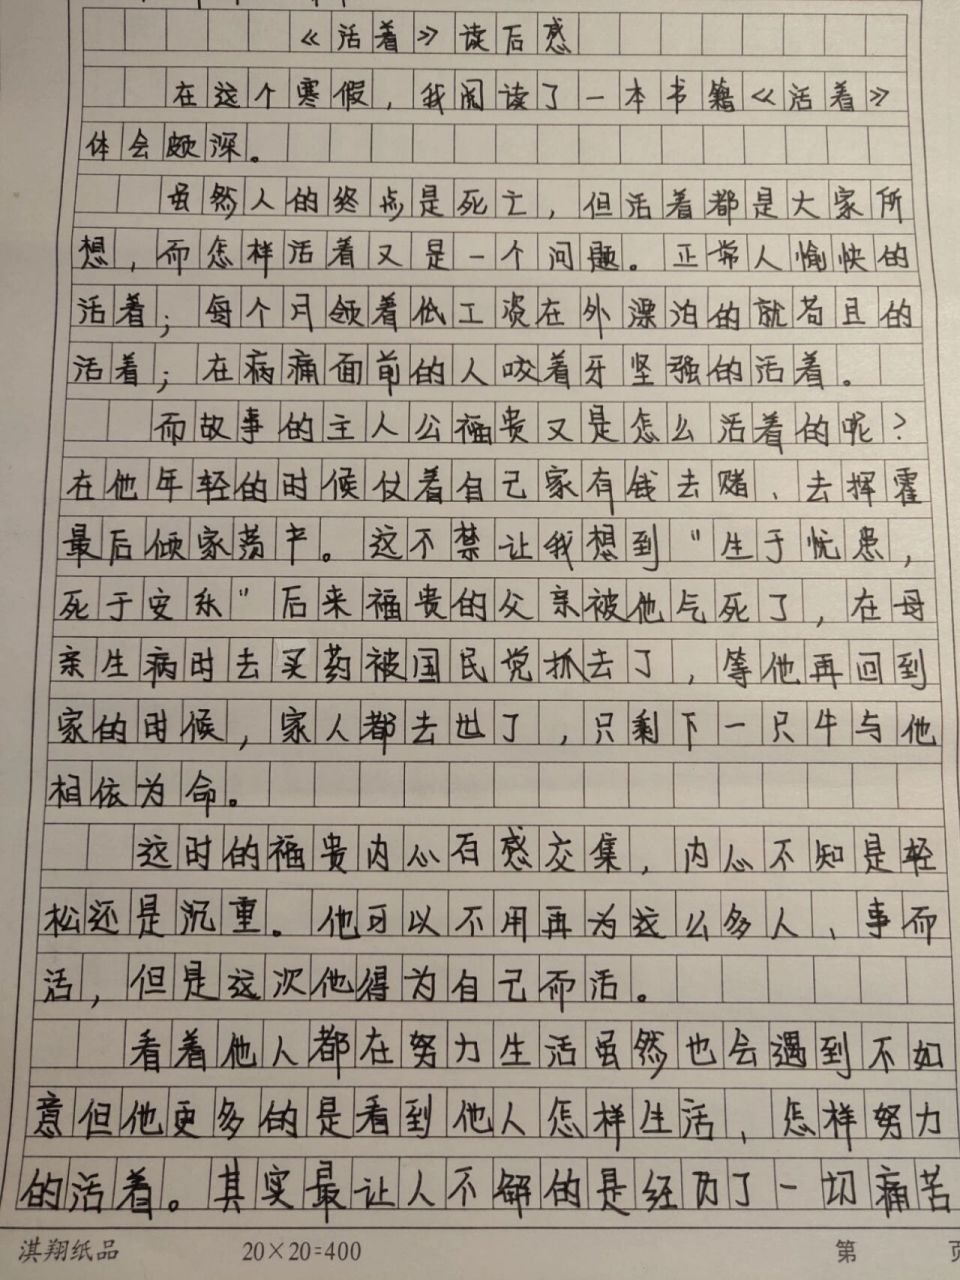 《活着》读后感
在这个寒假，我阅读了一本书籍《活着》
体会颇深。
虽然人的终点是死亡，但活着都是大家所
想，而怎样活着又是一个问题。正常人愉快的
活着；每个月领着低工资在外漂泊的就苟且的
活着；在病痛面前的人咬着牙坚强的活着。
而故事的主人公福贵又是怎么活着的呢？
在他年轻的时候仗着自己家有钱去赌、去挥霍
最后倾家荡产。这不禁让我想到"生于忧患，
死于安乐"后来福贵的父亲被他气死了，在母
亲生病时去买药被国民党抓去了，等他再回到
家的时候，家人都去世了，只剩下一只牛与他
相依为命。
这时的福贵内心百感交集，内心不知是轻
松还是沉重。他可以不用再为这么多人、事而
活，但是这次他得为自己而活。
看着他人都在努力生活虽然也会遇到不如
意但他更多的是看到他人怎样生活、怎样努力
的活着。其实最让人不解的是经历了一切痛苦
淇翔纸品 20×20=400 第 页